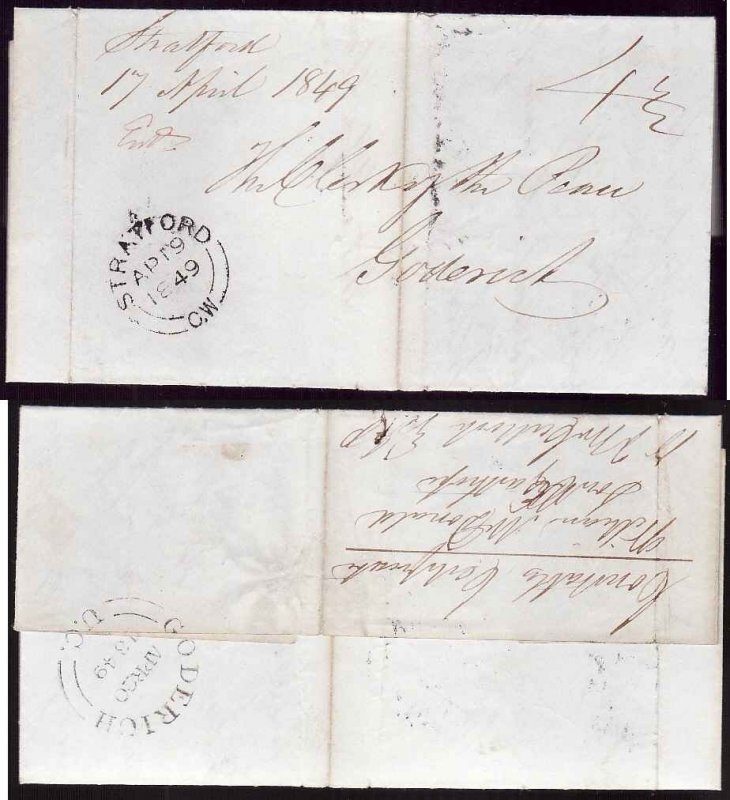 Stratford
17 April 1849
4½
The Clerk of the Peace
Goderich
STRATFORD
AP 19
1849
C.W
Constable's Certificate
William McDonald
South Easthope
GODERICH
APR 20
1849
U.C.